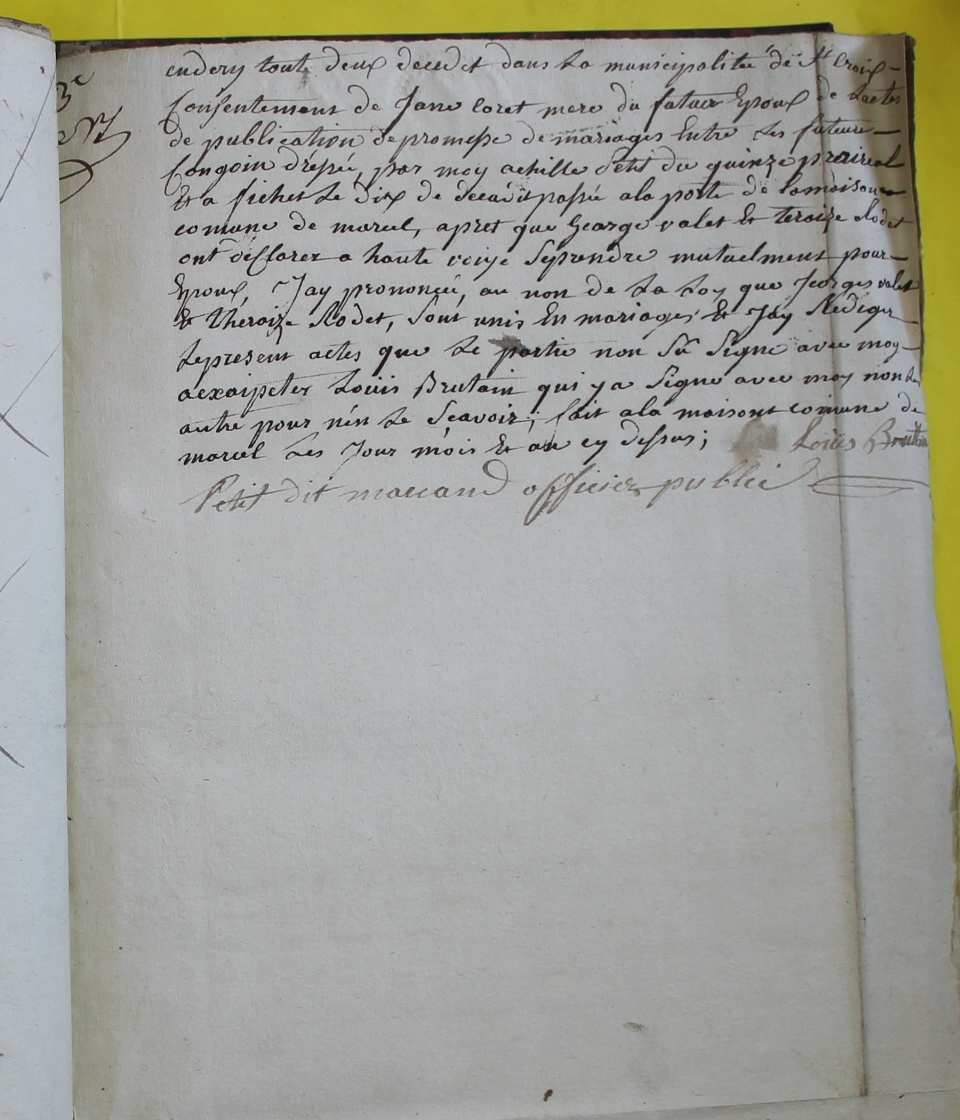 3e
endery toute deux decedet dans La municipalitée de St Croix
Consentement de Jane loret mere du futuer Epoux de Lactes
de publication de promesse de mariages Entre Les future
Congoin dressée, par moy achille Petit du quinze praireal
Et a fichet Le dix de passée a la porte de Lamaison
comune de marcel, apret que George valet Et teroize Rodet
ont desClarez a haute voiye Seprendre mutuelment pour
Epoux, Jay prononçée, au non de La Loy que Jeorges valet
Et theroize Rodet, Sont unis En mariages Et Jay Rediger
Lepresent actes que Le partie non Sû Signe avec moy
aexaipetes Louis Brutain qui ya Signe avec moy non Le
autre pour nén Le Scavoir; fait ala maisont comune de
marcel Les Jour mois Et an cy dessus; Louis
Petit dit macand officiez public